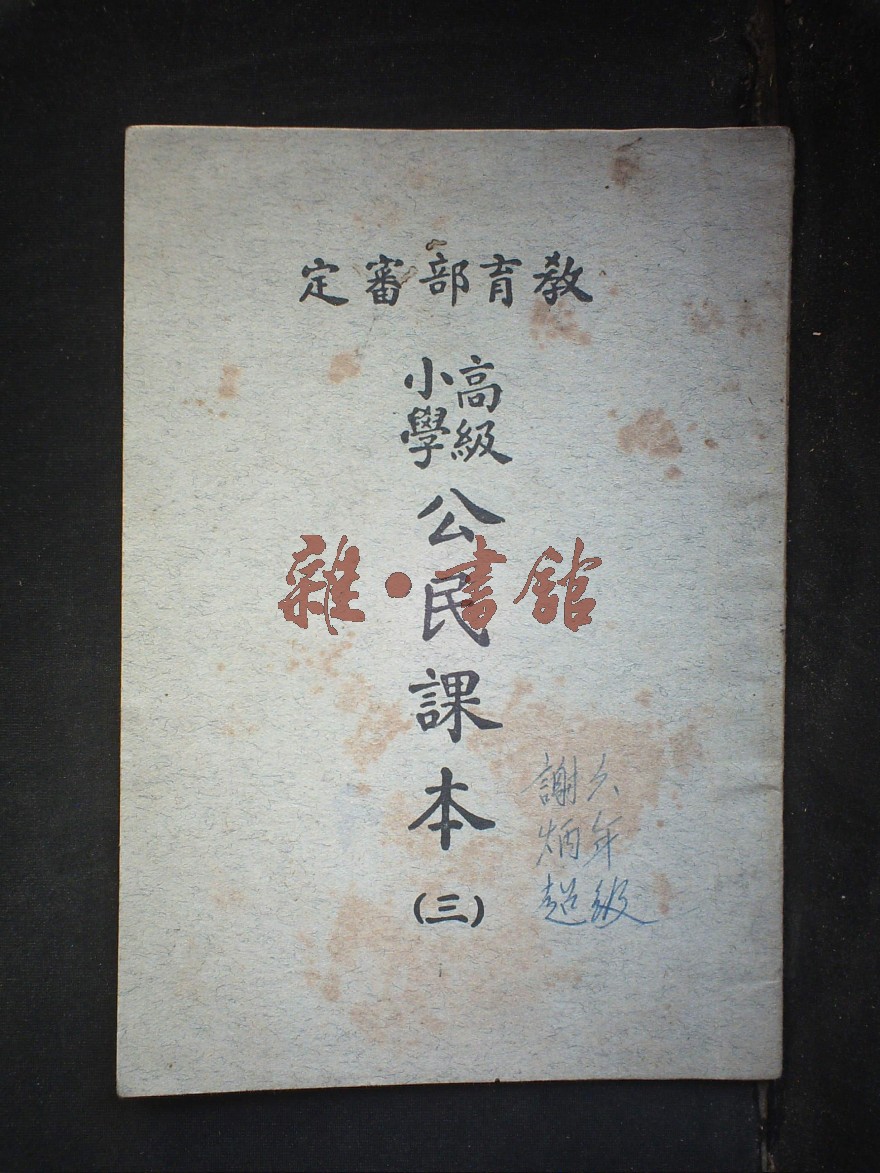 教育部審定
高級
小學
公民課本
(三)
六年級
謝炳超
雜·書館